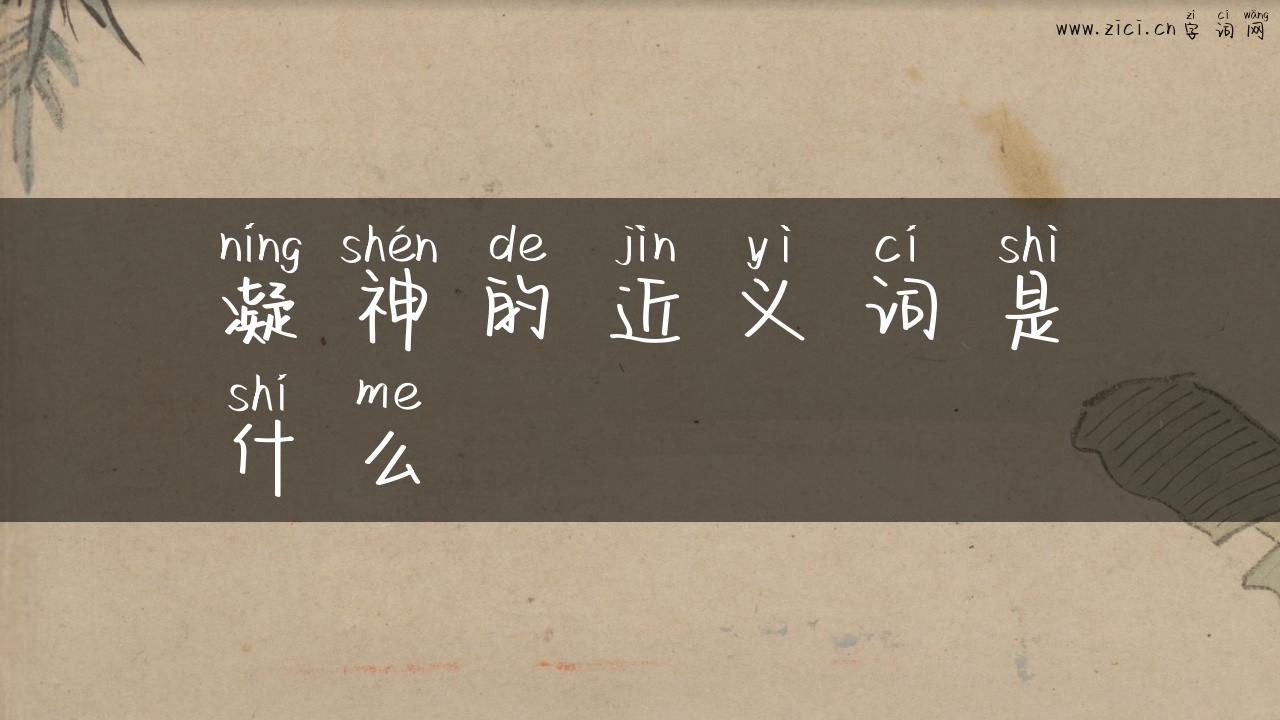 zì cí wǎng
www.zici.cn 字词网
níng shén de jìn yì cí shì
凝神的近义词是
shí me
什么